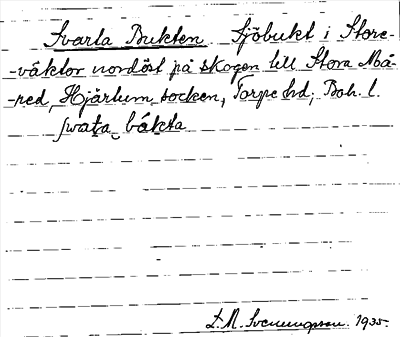 Svarta Bukten Sjöbukt i Store-
-väktor nordöst på skogen till Stora Må-
-red, Hjärtum socken, Torpe hd; Boh. l.
svata bákta
L. M. Svenungsson. 1935.